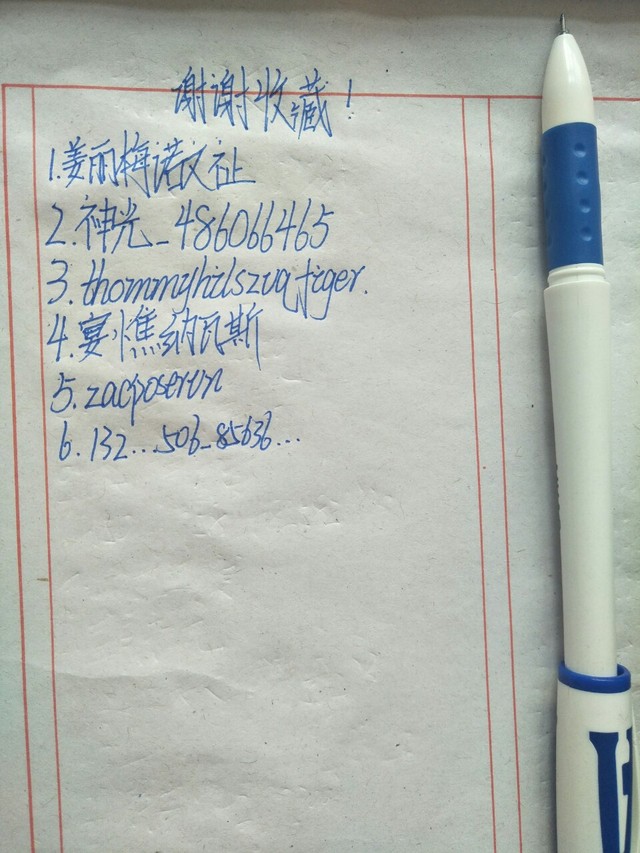 谢谢收藏！
1.姜丽梅诺文祉
2.神光_486066465
3.thommyhilszuqtiger.
4.宴憔纳瓦斯
5.zacposerun
6.132...506_85636...